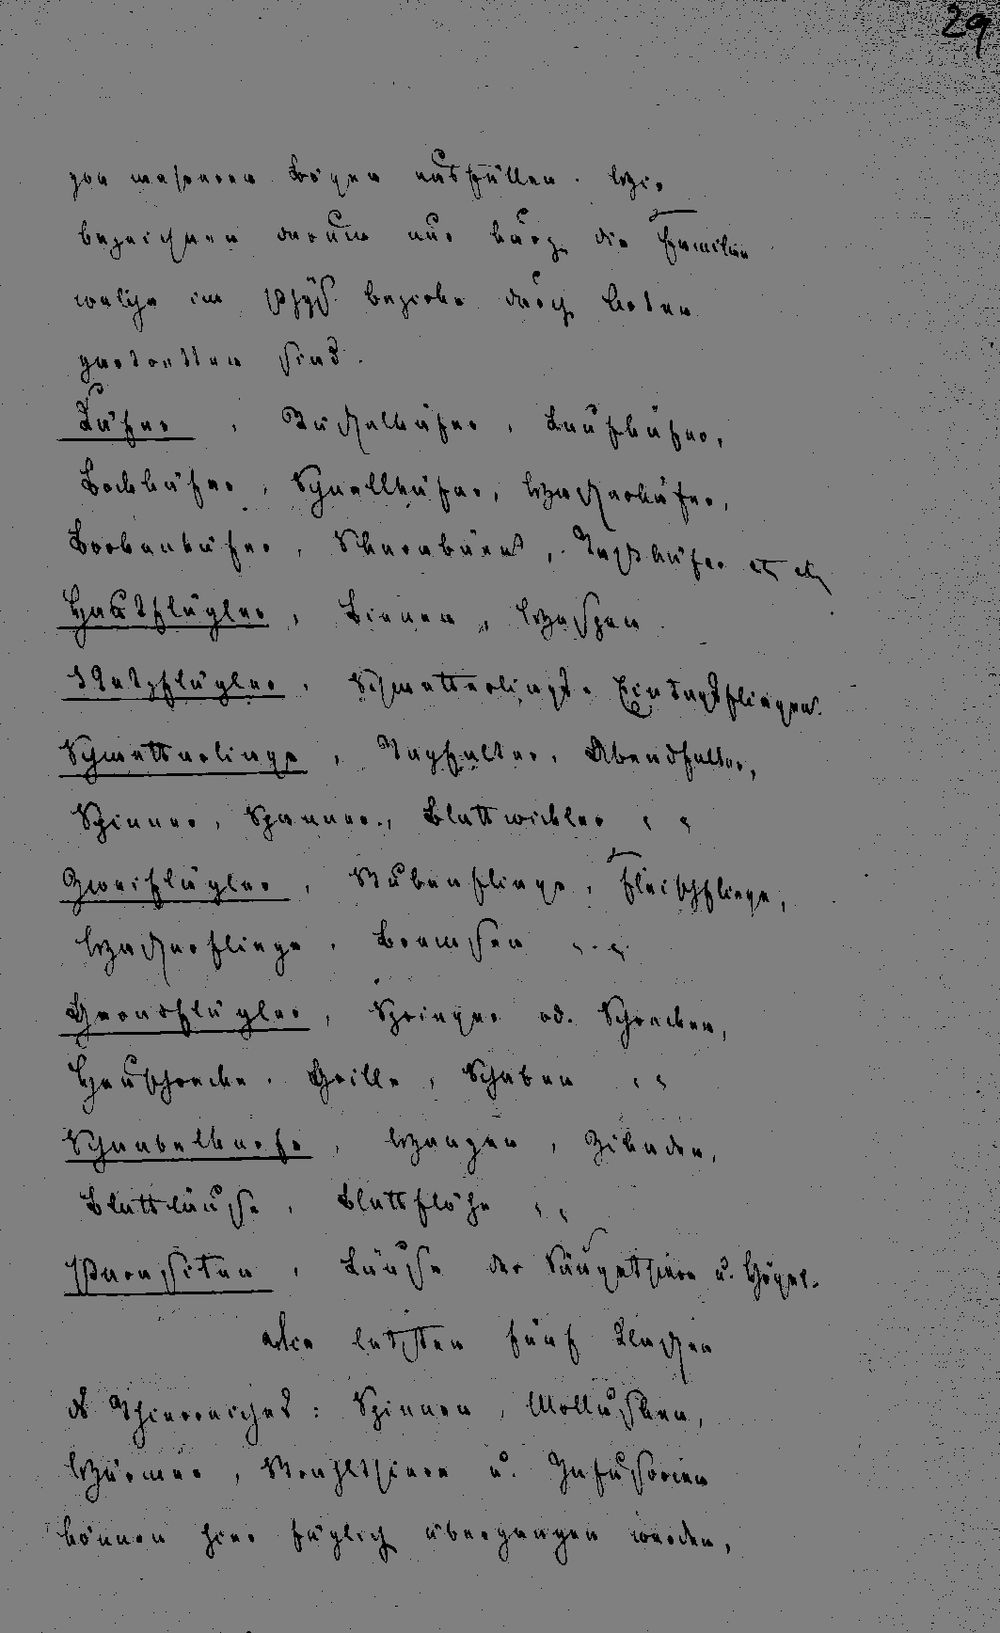 29
von mehreren Bögen ausfüllen. Wir
bezeichnen darum nur kurz die Familien
welche im Phys. bezirke durch Arten
vertretten sind.
Käfer, Rüsselkäfer, Laufkäfer,
Bockkäfer, Schnellkäfer, Wasserkäfer,
Borkenkäfer, etc etc
Hautflügler, Bienen, Wespen.
Netzflügler, Schmetterlings- Eintagsfliegen.
Schmetterlinge, Tagfalter, Abendfalter,
Spinner, Spanner, Blattwickler " "
Zweiflügler, Stubenfliege, Fleischfliege,
Wasserfliege, Bremsen " "
Geradflügler, Springer od. Schrecken,
Heuschrecke, Grille, Schaben " "
Schnabelkerfe, Wanzen, Zikaden,
Blattläuse, Blattflöhe " "
Parasiten, Läuse der Säugethiere u. Vögel.
Die letzten fünf Klassen
ds Thierreiches: Spinnen, Mollusken,
Würmer, Strahlthiere u. Infusorien
können hier füglich übergangen werden,